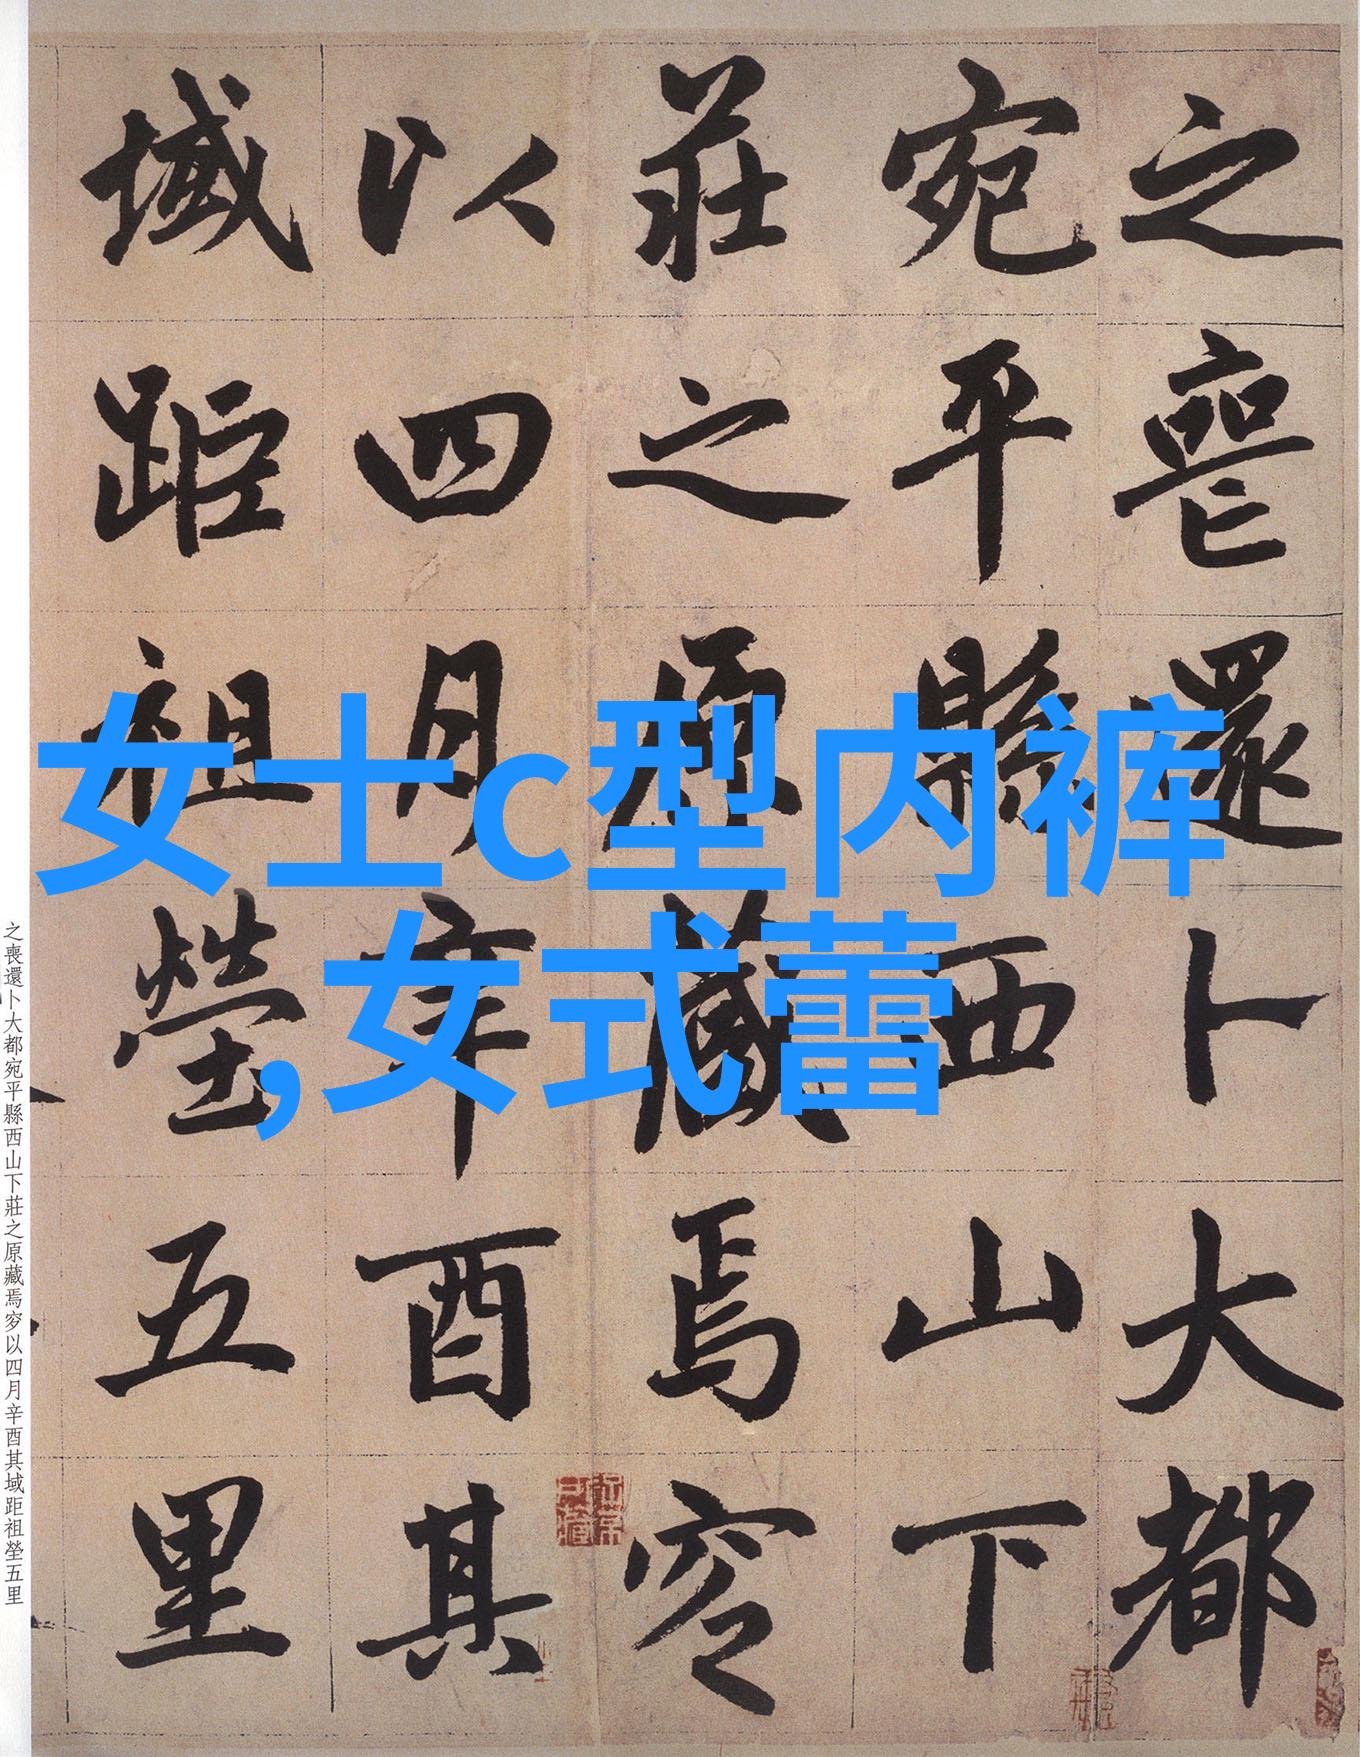 之喪還卜大都
宛平縣西山下
莊之原藏焉穸
以四月辛酉其
域距祖塋五里
女士c型内裤
,女式蕾
之喪還卜大都宛平縣西山下莊之原藏焉穸以四月辛酉其域距祖塋五里